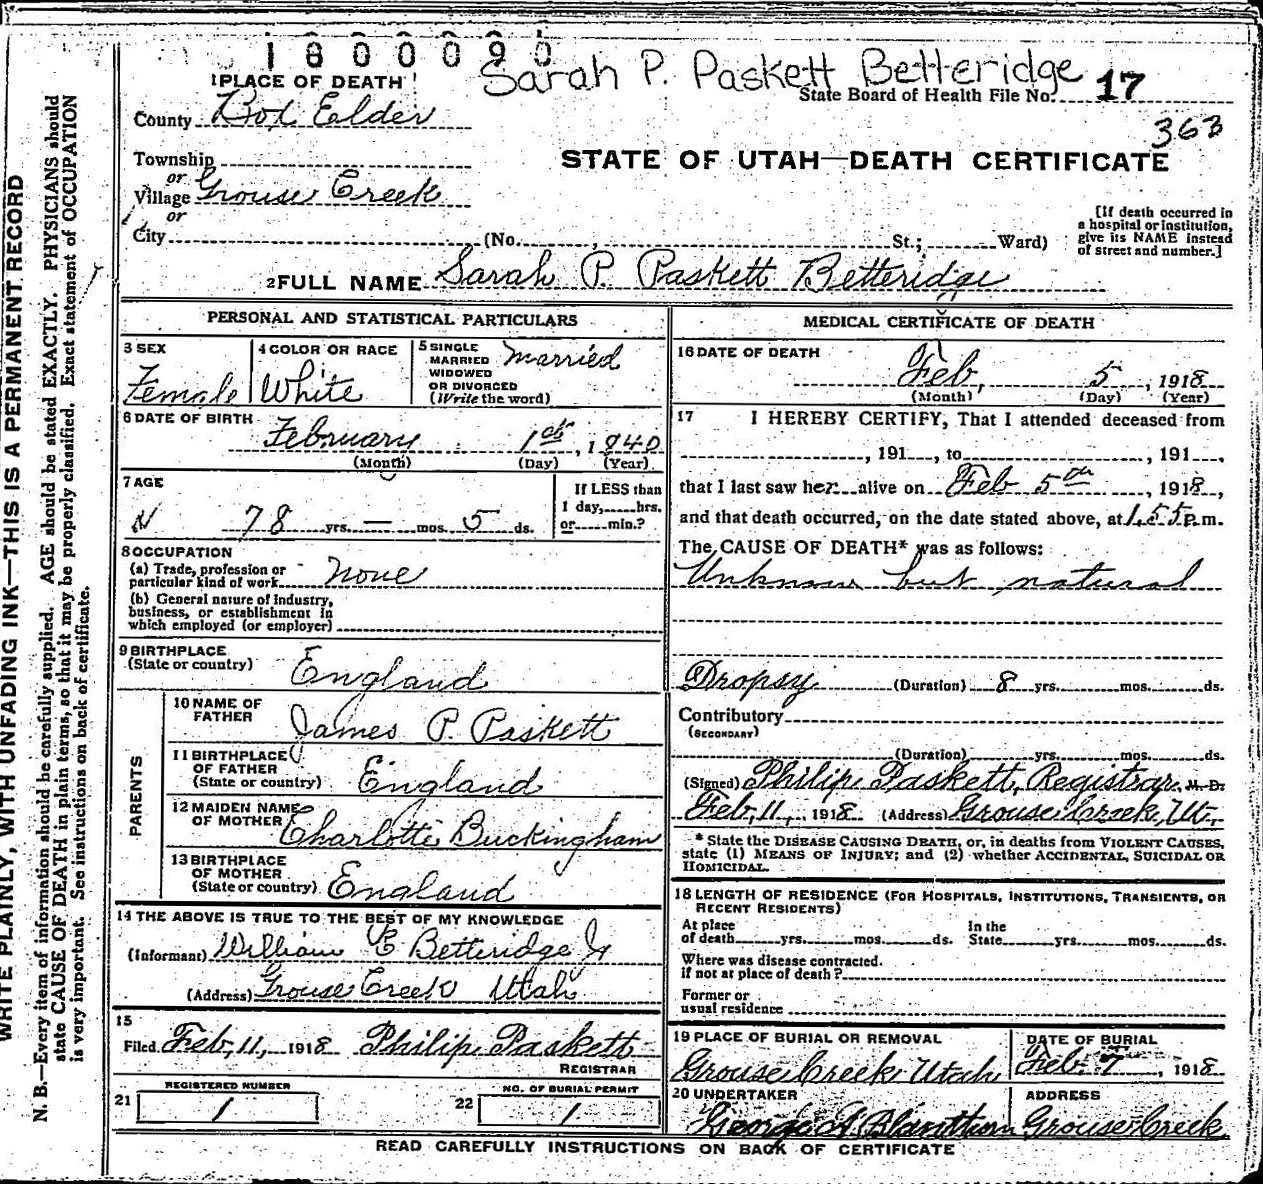 1800090
Sarah P. Paskett Betteridge
1 PLACE OF DEATH
State Board of Health File No. 17
County Box Elder
363
STATE OF UTAH—DEATH CERTIFICATE
Township
or
Village Grouse Creek
or
City (No. , St.; Ward)
[If death occurred in
a hospital or institution,
give its NAME instead
of street and number.]
2 FULL NAME Sarah P. Paskett Betteridge
PERSONAL AND STATISTICAL PARTICULARS
3 SEX
Female
4 COLOR OR RACE
White
5 SINGLE
MARRIED
WIDOWED
OR DIVORCED
(Write the word)
Married
6 DATE OF BIRTH
February 1st, 1840
(Month) (Day) (Year)
7 AGE
78 yrs. — mos. 5 ds.
If LESS than
1 day, hrs.
or min.?
8 OCCUPATION
(a) Trade, profession or
particular kind of work None
(b) General nature of industry,
business, or establishment in
which employed (or employer)
9 BIRTHPLACE
(State or country) England
PARENTS
10 NAME OF
FATHER James P. Paskett
11 BIRTHPLACE
OF FATHER
(State or country) England
12 MAIDEN NAME
OF MOTHER Charlotte Buckingham
13 BIRTHPLACE
OF MOTHER
(State or country) England
14 THE ABOVE IS TRUE TO THE BEST OF MY KNOWLEDGE
(Informant) William E Betteridge Jr
(Address) Grouse Creek Utah
15
Filed Feb, 11, 1918 Philip Paskett
REGISTRAR
REGISTERED NUMBER
21 1
NO. OF BURIAL PERMIT
22 1
MEDICAL CERTIFICATE OF DEATH
16 DATE OF DEATH
Feb, 5, 1918
(Month) (Day) (Year)
17 I HEREBY CERTIFY, That I attended deceased from
, 191 , to , 191 ,
that I last saw her alive on Feb 5th, 1918,
and that death occurred, on the date stated above, at 1.55 p.m.
The CAUSE OF DEATH* was as follows:
Unknown but natural
Dropsy (Duration) 8 yrs. mos. ds.
Contributory
(SECONDARY)
(Duration) yrs. mos. ds.
(Signed) Philip Paskett, Registrar. M. D.
Feb, 11, 1918 (Address) Grouse Creek, Ut,
* State the DISEASE CAUSING DEATH, or, in deaths from VIOLENT CAUSES,
state (1) MEANS OF INJURY; and (2) whether ACCIDENTAL, SUICIDAL OR
HOMICIDAL.
18 LENGTH OF RESIDENCE (FOR HOSPITALS, INSTITUTIONS, TRANSIENTS, OR
RECENT RESIDENTS)
At place
of death yrs. mos. ds.
In the
State yrs. mos. ds.
Where was disease contracted.
if not at place of death?
Former or
usual residence
19 PLACE OF BURIAL OR REMOVAL
Grouse Creek Utah
DATE OF BURIAL
Feb. 7, 1918
20 UNDERTAKER
George A.
ADDRESS
Grouse Creek
READ CAREFULLY INSTRUCTIONS ON BACK OF CERTIFICATE
WRITE PLAINLY, WITH UNFADING INK—THIS IS A PERMANENT RECORD
N. B.—Every item of information should be carefully supplied. AGE should be stated EXACTLY. PHYSICIANS should
state CAUSE OF DEATH in plain terms, so that it may be properly classified. Exact statement of OCCUPATION
is very important. See instructions on back of certificate.